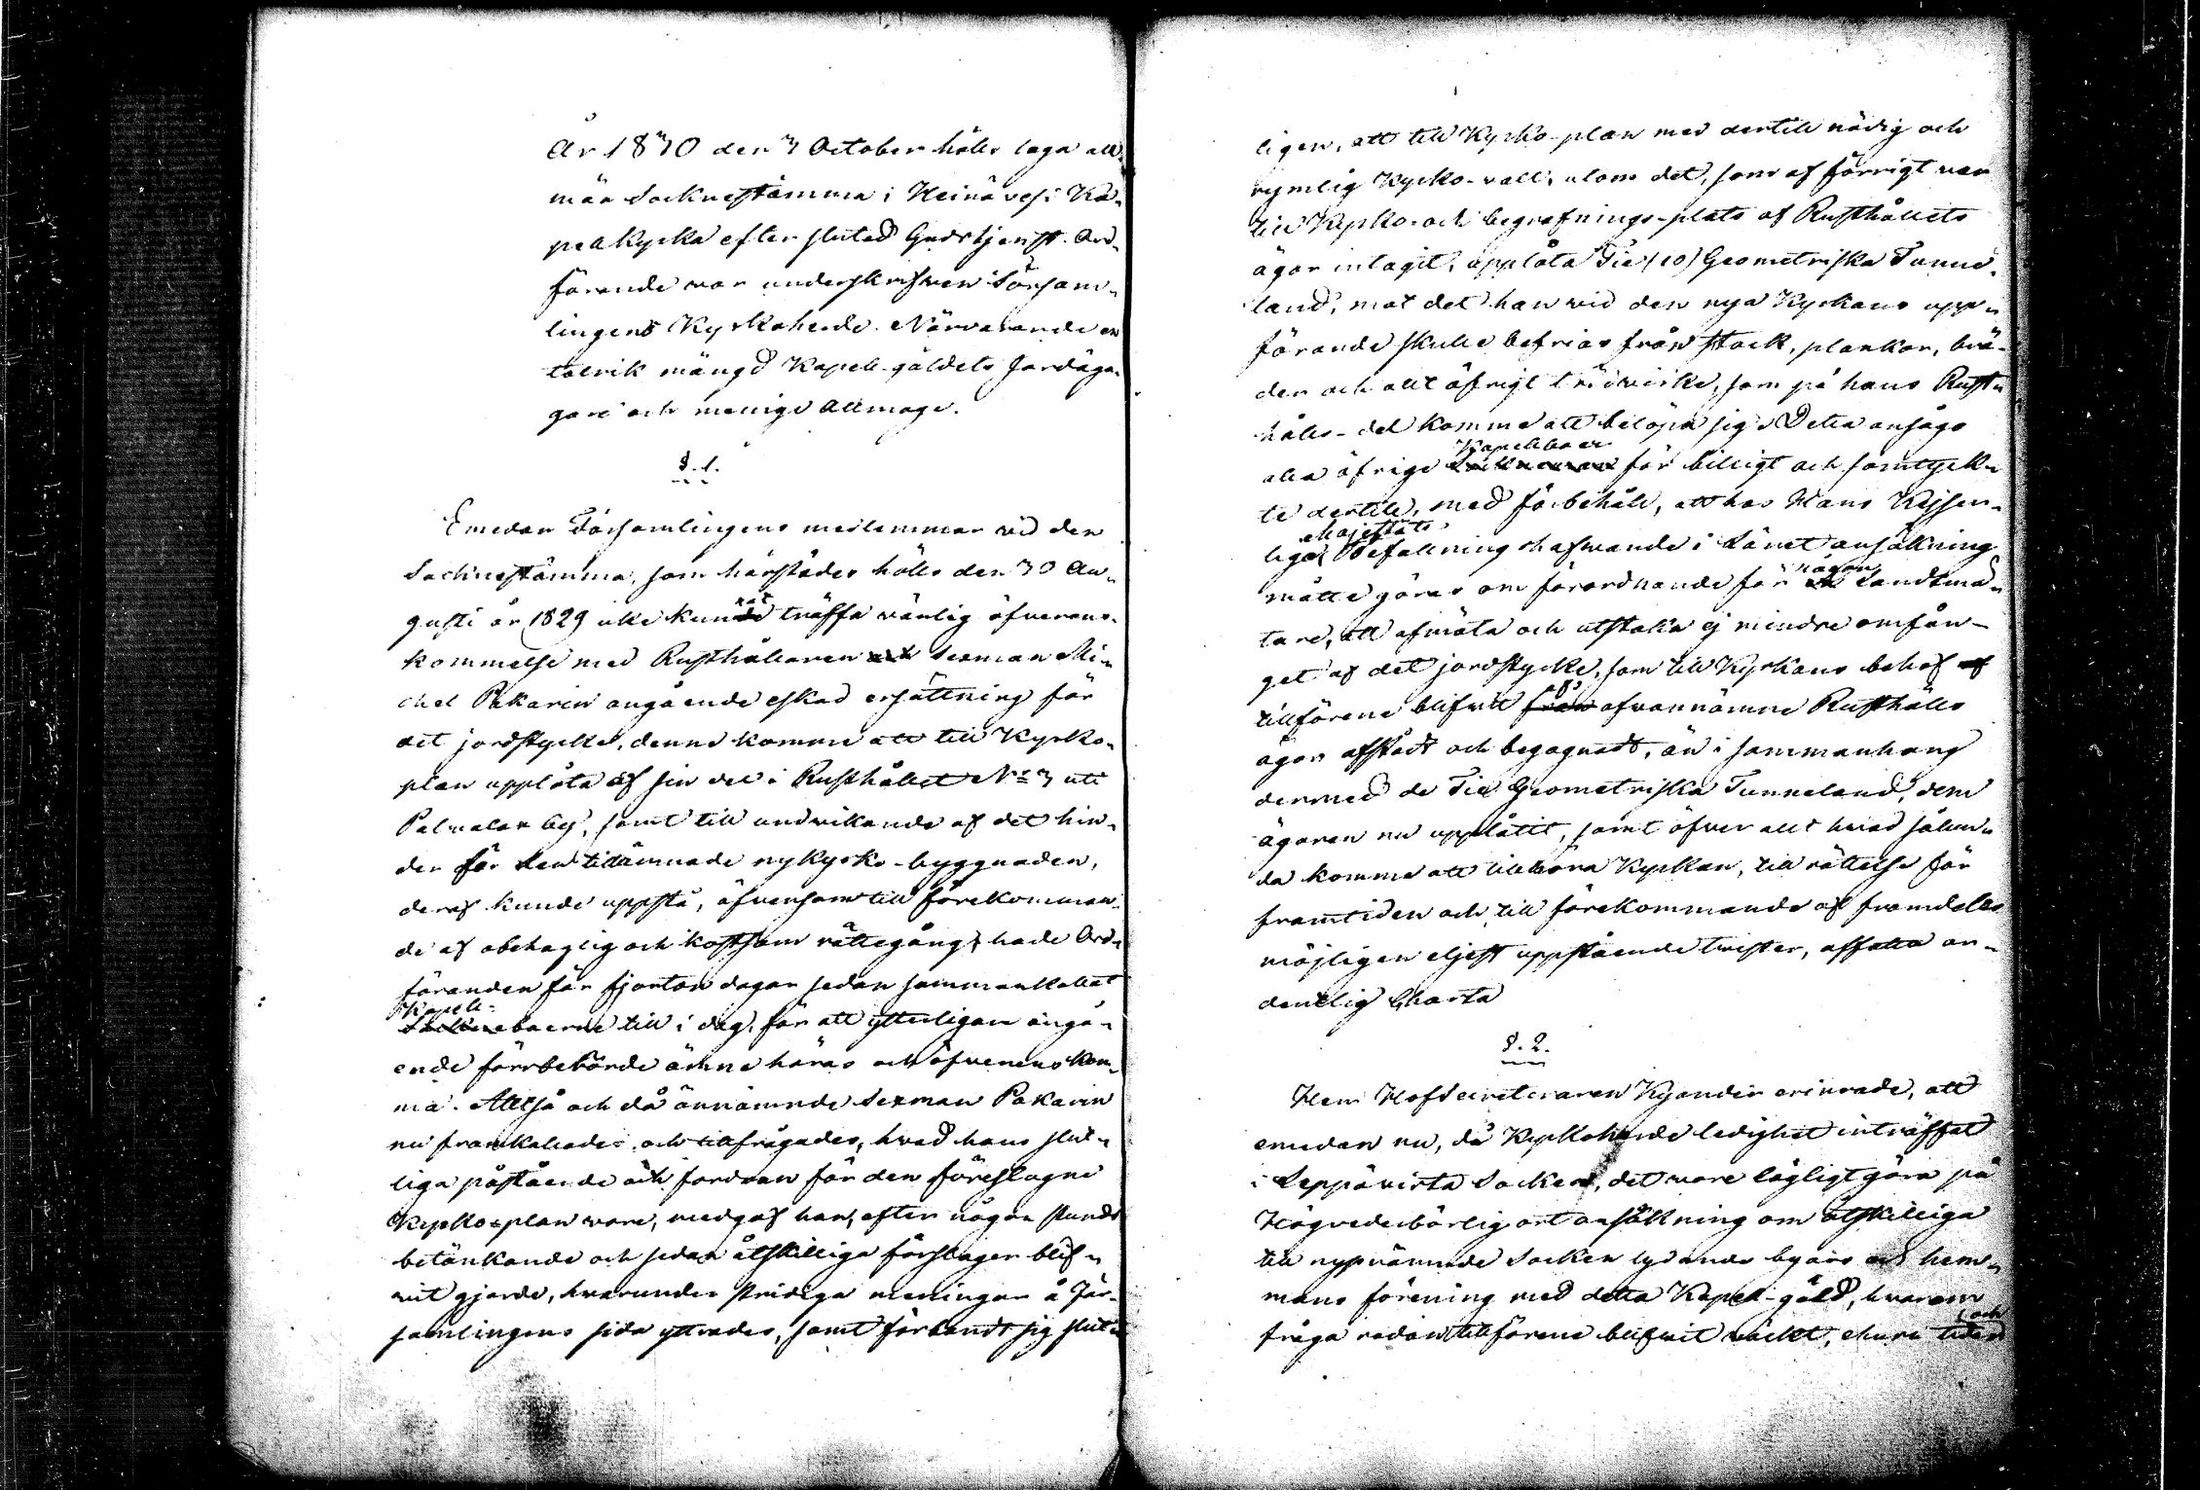 År 1830 den 3 October hölls laga all-
män Socknestämma i Heinävesi Ka-
pellkyrka efter slutad Gudstjenst. Ord-
förande var underskrifven Försam-
lingens Kyrkoherde. Närvarande en
talrik mängd Kapell-gäldets Jordäga-
gare och menige Allmoge.
§. 1.
Emedan Församlingens medlemmar vid den
Socknestämma, som härstädes hölls den 30 Au-
gusti år 1829 icke kunnat träffa vänlig öfverens-
kommelse med Rusthållaren Sexman Mi-
chel Pakarin angående eskad ersättning för
det jordstycke, denne komme att till Kyrko-
plan upplåta af sin del i Rusthållet No 3 uti
Palvalax by, samt till undvikande af det hin-
der för den tillämnade nykyrko-byggnaden,
deraf kunde uppstå, äfvensom till förekomman-
de af obehaglig och kostsam rättegång, hade Ord-
föranden för fjorton dagar sedan sammankallat
Kapell-
boerne till i dag, för att ytterligare angå-
ende förrberörde ämne höras och öfverenskom-
ma. Alltså och då ännämnde Sexman Pakarin
nu framkallades och tillfrågades, hvad hans slut-
liga påstående och fordran för den föreslagne
Kyrko-plan vore, medgaf han, efter någon stunds
betänkande och sedan åtskilliga förslager blif-
vit gjorde, hvarunder stridiga meningar å För-
samlingens sida yttrades, samt förbandt sig slut-
ligen, att till Kyrko-plan med dertill nödig och
rymlig Kyrko-vall, utom det, som af förrigt var
till Kyrko- och begrafnings-plats af Rusthållets
ägor intagit, upplåta Tie (10) Geometriska Tunne-
land, mot det han vid den nya Kyrkans upp-
förande skulle befrias från stock, plankor, brä-
der och allt öfrigt trädvirke, som på hans Rust-
hålls-del komme att belöpa sig. Detta ansågs
Kapellboer
alla öfrige för billigt och samtyck-
te dertill, med förbehåll, att hos Hans Kejser-
Majestäts
liga Befallningshafwande i Länet ansökning
någon
måtte göras om förordnande för Landtmä-
tare, att afmäta och utstaka ej mindre omfån-
get af det jordstycke, som till Kyrkans behof
tillförene blifvit af ofvannämnde Rusthålls
ägor afstådt och begagnadt, än i sammanhang
dermed de Tie Geometriska Tunneland, dem
ägaren nu upplåtit, samt öfver allt hvad sålun-
da komme att tillhöra Kyrkan, till rättelse för
framtiden och till förekommande af framdeles
möjligen eljest uppstående twister, affatta or-
dentelig Charta
§. 2.
Herr HofSecreteraren Kyander erinrade, att
emedan nu, då Kyrkoherde ledighet inträffat
i Leppävirta Socken, det vore lägligt göra på
Högvederbörlig ort ansökning om åtskilliga
till nyssnämnde Socken lydande byars och hem-
mans förening med detta Kapell-gäld, hvarom
och
fråga redan tillförene blifvit väckt, ehuru